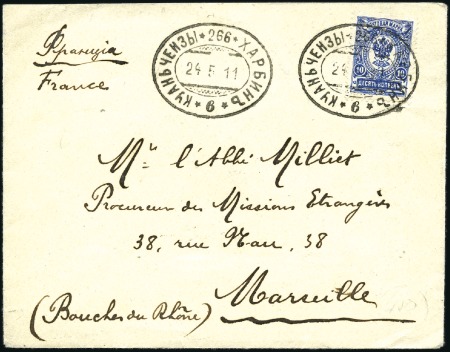 Франція
France
КУАНЬЧЕНЗЫ * 266 * ХАРБИНЪ * 6 *
24·5·11
КУАНЬЧЕНЗЫ
6
24
10 10
ДЕСЯТЬ КОПѢЕКЪ
Mr l'Abbé Milliet
Procureur des Missions Etrangères
38, rue Nau, 38
Marseille
(Bouches du Rhône)